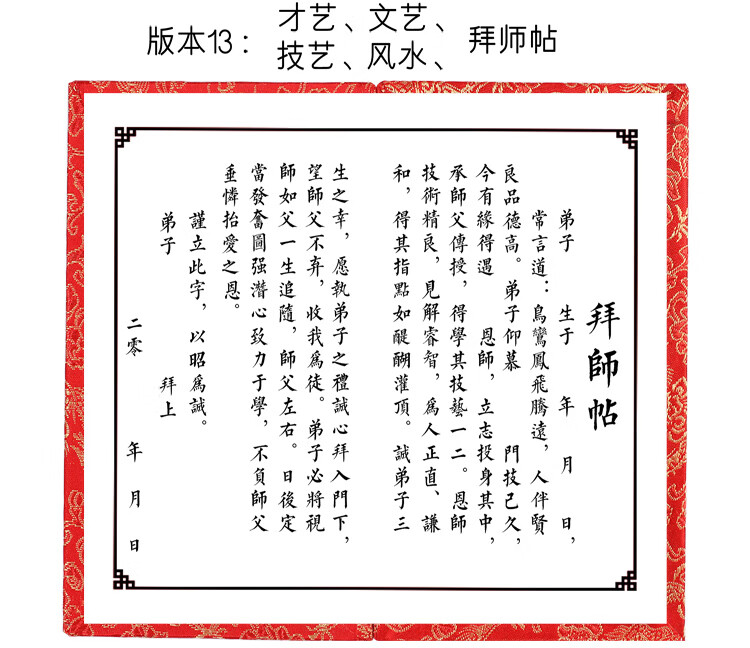 版本13：
才艺、文艺、
技艺、风水、
拜师帖
拜師帖
弟子　生于　年　月　日，
常言道：鳥鸞鳳飛騰遠，人伴賢
良品德高。弟子仰慕　門技已久，
今有緣得遇　恩師，立志投身其中，
承師父傳授，得學其技藝一二。恩師
技術精良，見解睿智，爲人正直、謙
和，得其指點如醍醐灌頂。誠弟子三
生之幸，愿執弟子之禮誠心拜入門下，
望師父不弃，收我爲徒。弟子必將視
師如父一生追隨，師父左右。日後定
當發奮圖强潛心致力于學，不負師父
垂憐抬愛之恩。
謹立此字，以昭爲誠。
弟子　拜上
二零　年　月　日